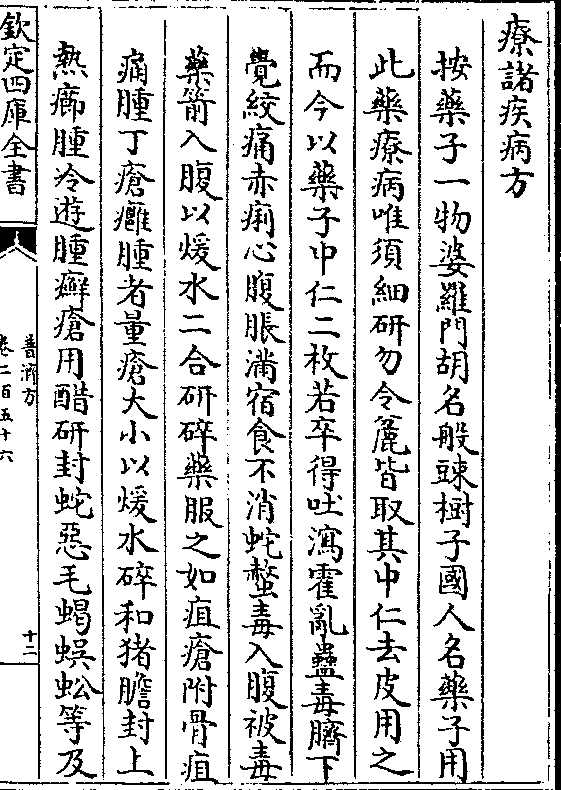 療諸疾病方
按藥子一物婆羅門胡名般豉樹子國人名藥子用
此藥療病唯須細研勿令麄皆取其中仁去皮用之
而今以藥子中仁二枚若卒得吐瀉霍亂蠱毒臍下
覺絞痛赤痢心腹脹滿宿食不消蛇螫毒入腹被毒
藥箭入腹以煖水二合研碎藥服之如疽瘡附骨疽
痛腫丁瘡癰腫者量瘡大小以煖水碎和猪膽封上
熱癤腫冷遊腫癬瘡用醋研封蛇惡毛蝎蜈蚣等及
欽定四庫全書
普濟方
卷二百五十六
十二